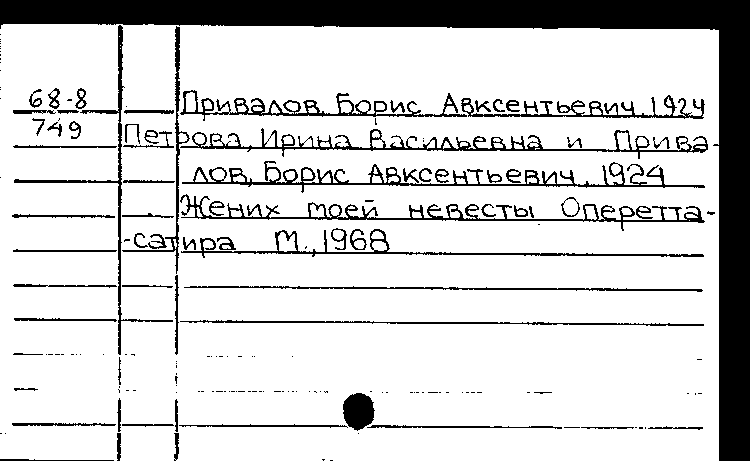 68-8 Привалов, Борис Авксентьевич, 1924
749 Петрова, Ирина Васильевна и Прива-
лов, Борис Авксентьевич, 1924
Жених моей невесты Оперетта-
-сатира М., 1968